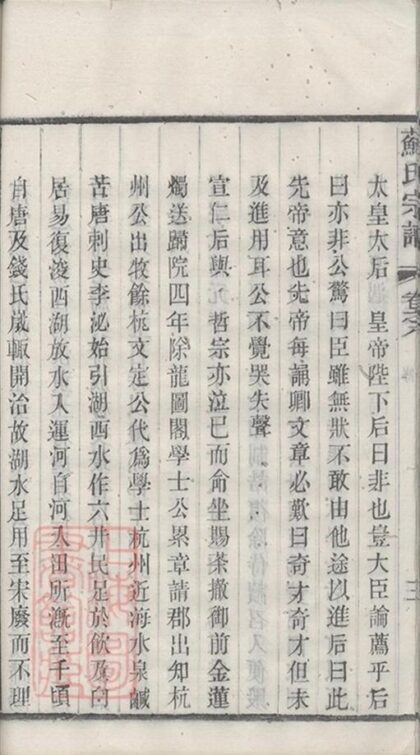 太皇太后 皇帝陛下后曰非也豈大臣論薦乎后
曰亦非公驚曰臣雖無狀不敢由他途以進后曰此
先帝意也先帝每誦卿文章必歎曰奇才奇才但未
及進用耳公不覺哭失聲
宣仁后與 哲宗亦泣已而命坐賜茶撤御前金蓮
燭送歸院四年除龍圖閣學士公累章請郡出知杭
州公出牧餘杭文定公代為學士杭州近海水泉鹹
苦唐刺史李泌始引湖西水作六井民足於飲及白
居易復浚西湖放水入運河自河入田所漑至千頃
自唐及錢氏嵗輒開治故湖水足用至宋廢而不理
蘇氏宗譜